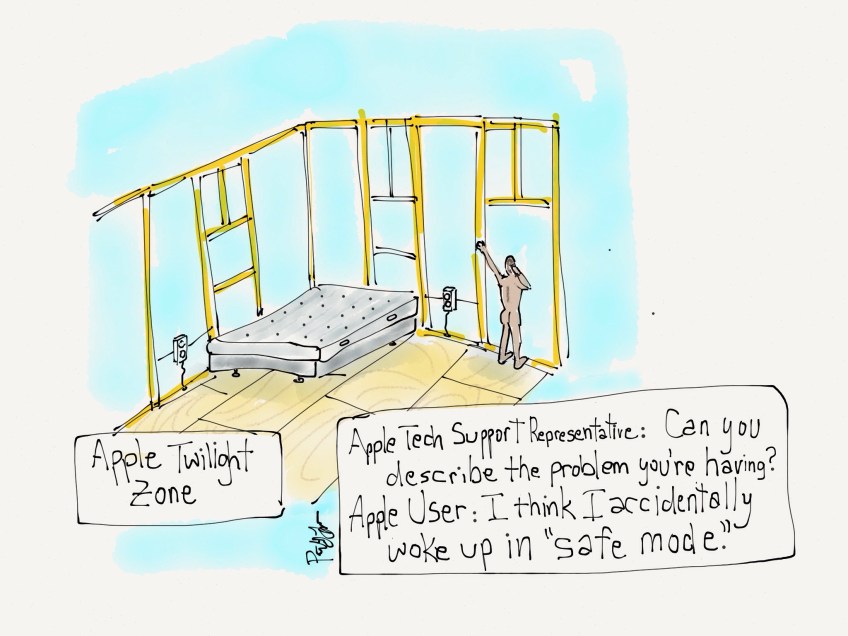 Apple Twilight
Zone
Apple Tech Support Representative: Can you
describe the problem you're having?
Apple User: I think I accidentally
woke up in "safe mode."